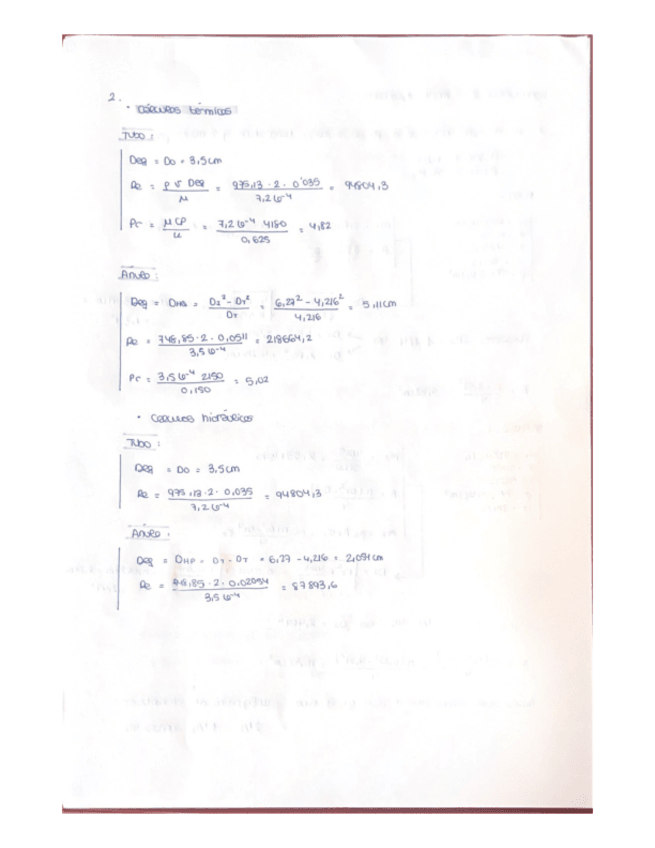 2.
• Cálculos térmicos
Tubo:
Deq = Do = 3,5cm
Re = ρ v Deq / μ = 975,13 · 2 · 0'035 / 7,2 10⁻⁴ = 94804,3
Pr = μ CP / k = 7,2 10⁻⁴ 4180 / 0,625 = 4,82
Ánulo:
Deq = = D₂² - D₁² / D₁ = 6,27² - 4,216² / 4,216 = 5,11cm
Re = 748,85 · 2 · 0,0511 / 3,5 10⁻⁴ = 218664,2
Pr = 3,5 10⁻⁴ 2150 / 0,150 = 5,02
• Cálculos hidráulicos
Tubo:
Deq = Do = 3,5cm
Re = 975,13 · 2 · 0,035 / 7,2 10⁻⁴ = 94804,3
Ánulo:
Deq = DHP = - = 6,27 - 4,216 = cm
Re = · 2 · 0,02054 / 3,5 10⁻⁴ = 87893,6